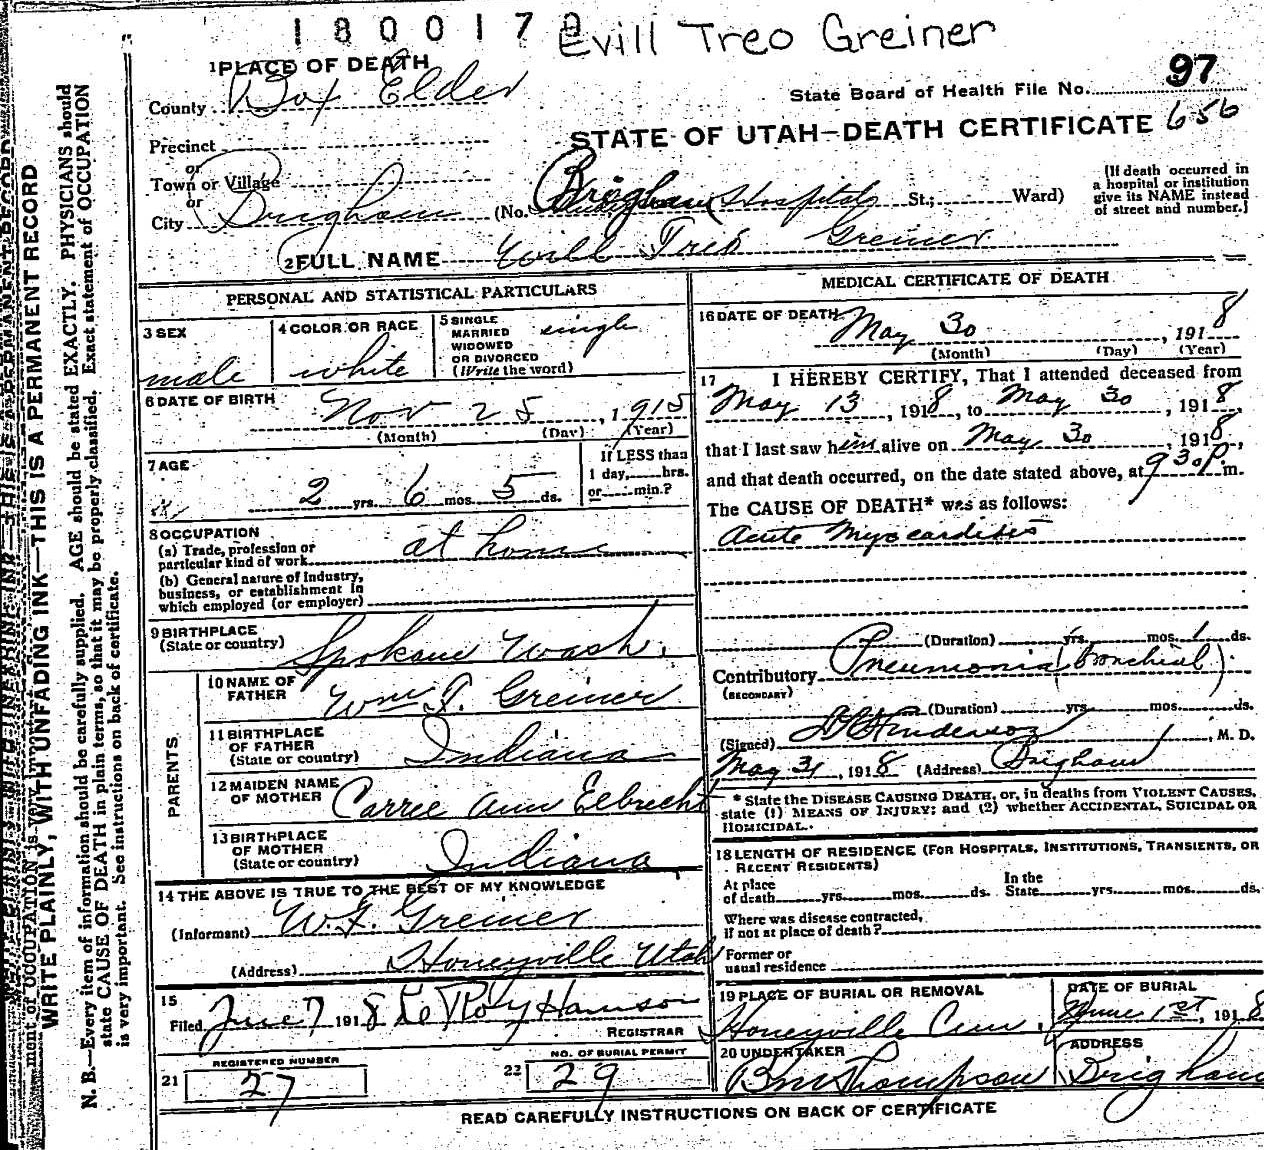 1800170
Evill Treo Greiner
1 PLACE OF DEATH
County Box Elder
State Board of Health File No. 97
656
STATE OF UTAH—DEATH CERTIFICATE
Precinct
or
Town or Village
or
City Brigham (No. Brigham Hospital St.; Ward)
(If death occurred in a hospital or institution give its NAME instead of street and number.)
2 FULL NAME Evill Treo Greiner
PERSONAL AND STATISTICAL PARTICULARS
3 SEX male
4 COLOR OR RACE white
5 SINGLE MARRIED WIDOWED OR DIVORCED (Write the word) single
6 DATE OF BIRTH Nov 25, 1915
(Month) (Day) (Year)
7 AGE 2 yrs. 6 mos. 5 ds.
If LESS than 1 day, hrs. or min.?
8 OCCUPATION
(a) Trade, profession or particular kind of work at home
(b) General nature of Industry, business, or establishment in which employed (or employer)
9 BIRTHPLACE (State or country) Spokane Wash.
PARENTS
10 NAME OF FATHER Wm F. Greiner
11 BIRTHPLACE OF FATHER (State or country) Indiana
12 MAIDEN NAME OF MOTHER Carree Ann Elbrecht
13 BIRTHPLACE OF MOTHER (State or country) Indiana
14 THE ABOVE IS TRUE TO THE BEST OF MY KNOWLEDGE
(Informant) W.F. Greiner
(Address) Honeyville Utah
15
Filed June 7 1918 Le Roy Hanson
REGISTRAR
REGISTERED NUMBER
21 27
NO. OF BURIAL PERMIT
22 29
MEDICAL CERTIFICATE OF DEATH
16 DATE OF DEATH May 30, 1918
(Month) (Day) (Year)
17 I HEREBY CERTIFY, That I attended deceased from
May 13, 1918, to May 30, 1918,
that I last saw him alive on May 30, 1918,
and that death occurred, on the date stated above, at 9 30 P m.
The CAUSE OF DEATH* was as follows:
Acute Myocarditis
(Duration) yrs. mos. 1 ds.
Contributory Pneumonia (bronchial).
(SECONDARY)
(Duration) yrs. mos. ds.
(Signed) , M. D.
May 31, 1918 (Address) Brigham
* State the DISEASE CAUSING DEATH, or, in deaths from VIOLENT CAUSES, state (1) MEANS OF INJURY; and (2) whether ACCIDENTAL, SUICIDAL OR HOMICIDAL.
18 LENGTH OF RESIDENCE (FOR HOSPITALS, INSTITUTIONS, TRANSIENTS, OR RECENT RESIDENTS)
At place of death yrs. mos. ds. In the State yrs. mos. ds.
Where was disease contracted, if not at place of death?
Former or usual residence
19 PLACE OF BURIAL OR REMOVAL Honeyville Cem.
DATE OF BURIAL June 1st, 1918
20 UNDERTAKER Thompson
ADDRESS Brigham
READ CAREFULLY INSTRUCTIONS ON BACK OF CERTIFICATE
WRITE PLAINLY, WITH UNFADING INK—THIS IS A PERMANENT RECORD
N. B.—Every item of information should be carefully supplied. AGE should be stated EXACTLY. PHYSICIANS should
state CAUSE OF DEATH in plain terms, so that it may be properly classified. Exact statement of OCCUPATION
is very important. See instructions on back of certificate.